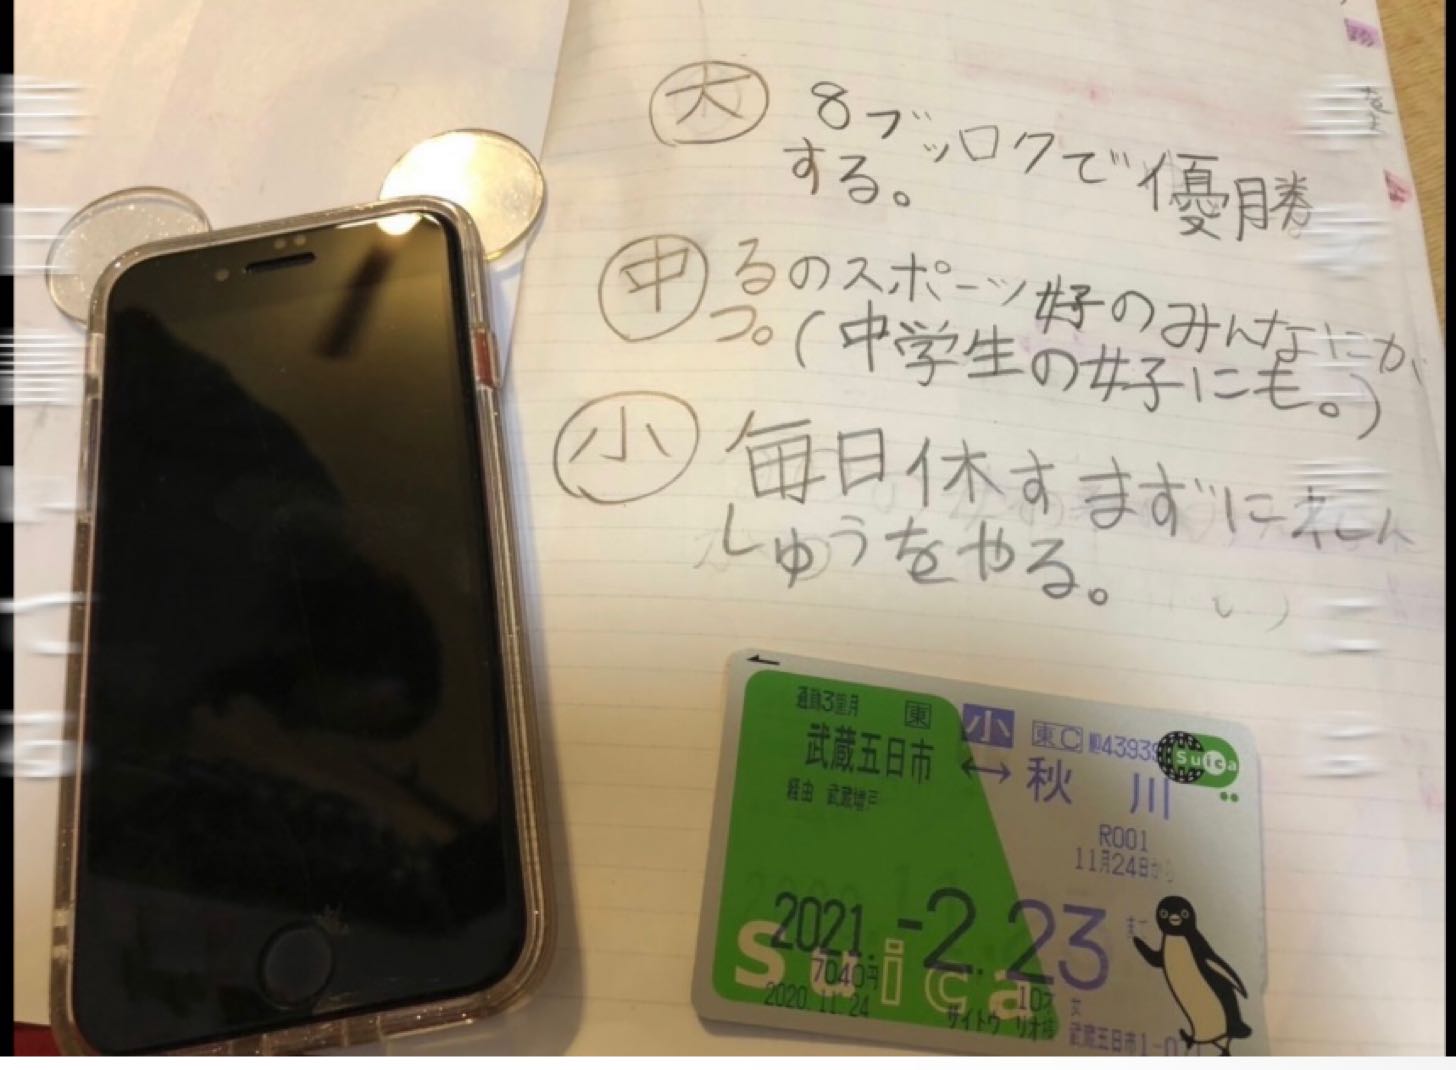 大 8ブッロクで優勝
する。
中 るのスポーツ好のみんなにか
つ。(中学生の女子にも。)
小 毎日休すまずにれん
しゅうをやる。
通勤3箇月 東 小 東C
武蔵五日市 ↔ 秋川
Suica
経由 武蔵増戸
R001
11月24日から
2021.-2.23まで
Suica
7040円
2020.11.24
10才 女
サイトウ リオ様
武蔵五日市1-